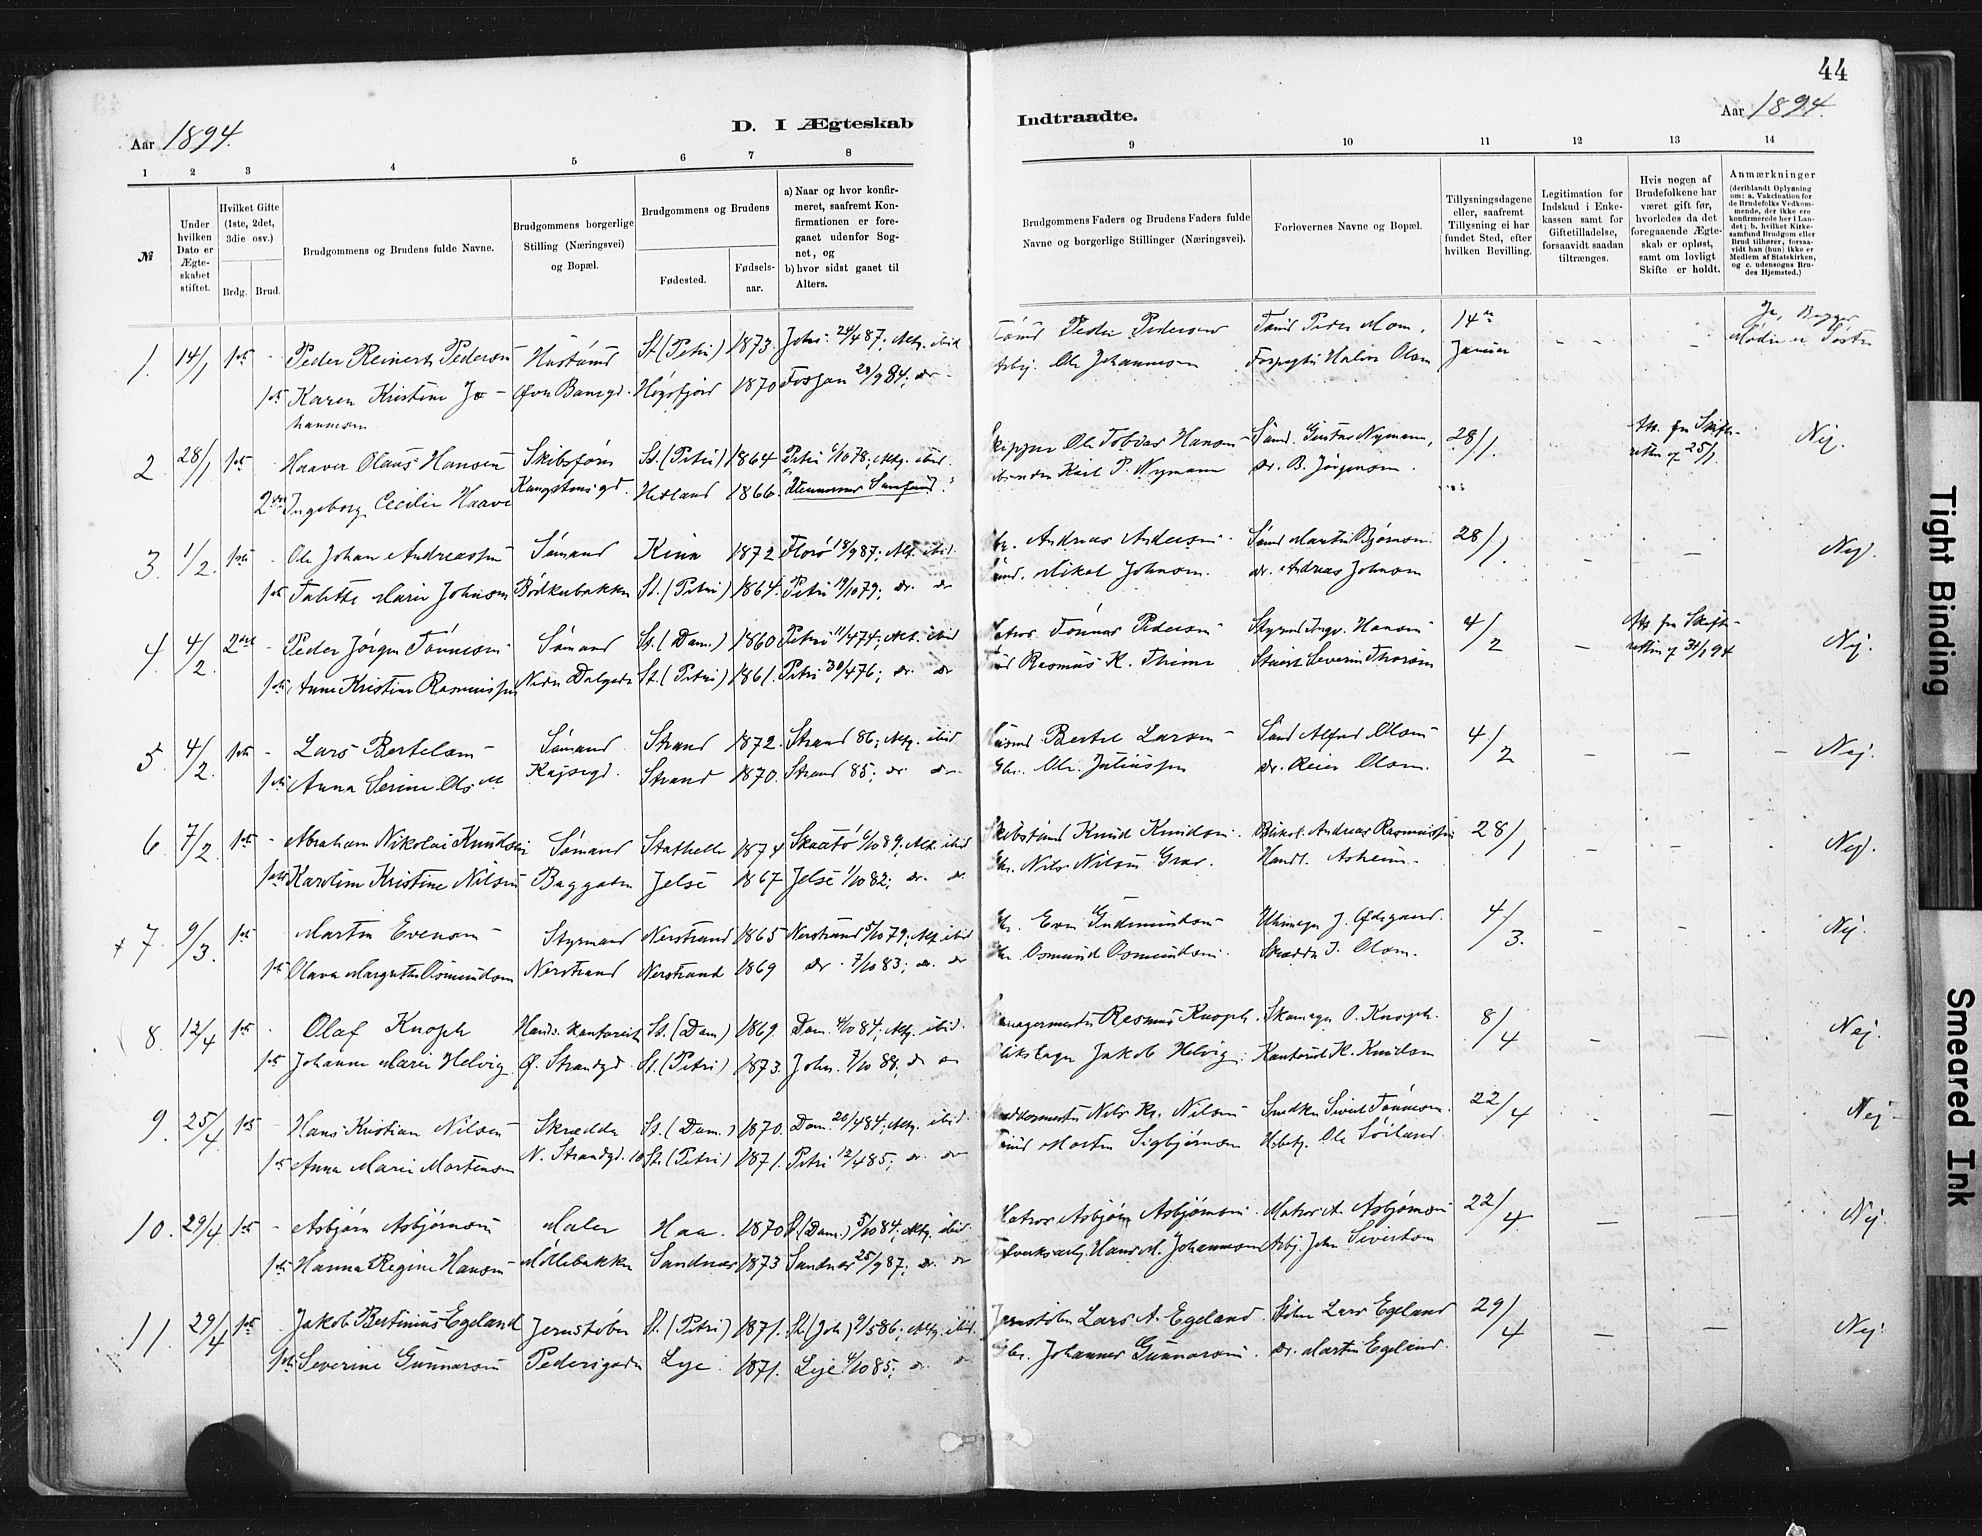 44
Aar 1894.
D. I Ægteskab
Indtraadte.
Aar 1894.
1 2 3 4 5 6 7 8
9 10 11 12 13 14
№
Under hvilken Dato er Ægteskabet stiftet.
Hvilket Gifte (1ste, 2det, 3die osv.)
Brdg. Brud.
Brudgommens og Brudens fulde Navne.
Brudgommens borgerlige Stilling (Næringsvei) og Bopæl.
Brudgommens og Brudens
Fødested.
Fødselsaar.
a) Naar og hvor konfirmeret, saafremt Konfirmationen er foregaaet udenfor Sognet, og
b) hvor sidst gaaet til Alters.
Brudgommens Faders og Brudens Faders fulde Navne og borgerlige Stillinger (Næringsvei).
Forlovernes Navne og Bopæl.
Tillysningsdagene eller, saafremt Tillysning ei har fundet Sted, efter hvilken Bevilling.
Legitimation for Indskud i Enkekassen samt for Giftetilladelse, forsaavidt saadan tiltrænges.
Hvis nogen af Brudefolkene har været gift før, hvorledes da det foregaaende Ægteskab er opløst, samt om lovligt Skifte er holdt.
Anmærkninger
(deriblandt Oplysning om: a. Vakcination for de Brudefolks Vedkommende, der ikke ere konfirmerede her i Landet; b. hvilket Kirkesamfund Brudgom eller Brud tilhører, forsaavidt han (hun) ikke er Medlem af Statskirken, og c. udensogns Brudes Hjemsted.)
1. 14/1 1ste - Peder Reinert Pedersen St. (Petri) 1873. Johs. 24/4 87; Altg. ibid. Peder Pedersen 14de
1ste Karen Kristine Jo- Øvre Banegd. Høgsfjord 1870 Fossan 28/9 84; do - Arbj. Ole Johannesen Halvor Olsen Januar
hannesen
2 28/1 1ste Haaver Olaus Hansen Skibsfører St. (Petri) 1864 Petri 6/10 78; Altg. ibid. Skipper Ole Tobias Hansen - Sømd. Gustav Nymann, 28/1. Nej.
2den Ingeborg Cecilie Haave Kongstensgd. Hetland 1866. Karl P. Nymann do. B. Jørgensen.
3. 1/2. 1ste - Ole Johan Andreassen Sømand Kinn 1872 Florø 18/9 87; Alt. ibid. Andreas Andersen Sømd Martin Bjørnsen. 28/1. Nej.
1ste Talette Marie Johnsen Bødkerbakken St. (Petri) 1864. Petri 19/10 79; do. do Mikal Johnsen. do. Andreas Johnsen
4. 4/2. 2det - Peder Jørgen Tønnesen Sømand St. (Dom.) 1860 Petri 11/4 74; Alt. ibid Matros. Tønnes Pedersen Styrmd Ingv. Hansen 4/2 Nej.
1ste Anne Kristine Rasmussen Nedre Dalgade St. (Petri) 1861. Petri 30/4 76; do. do Rasmus K. Thime Severin Thorsen
5 4/2. 1ste - Lars Bertelsen Sømand Strand 1872. Strand 86; Altg. ibid Husmd Bertel Larsen Sømd Alfred Olsen 4/2 Nej.
1ste Anna Serine Olsen Kajsegd. Strand 1870. Strand 85; do. do. Gbr. Ole Juliussen do. Reier Olsen.
6. 7/2. 1ste - Abraham Nikolai Knudsen Sømand Stathelle 1874 Skaatø 6/10 89; Alt. ibid Knud Knudsen. Andreas Rasmussen 28/1 Nej.
1ste Karoline Kristine Nilsen Baggaten Jelse 1867 Jelse 1/10 82; do. do. Gbr. Nils Nilsen Grav. Handl. Asheim.
+ 7. 9/3. 1ste Martin Evensen Styrmand Nerstrand 1865 Nerstrand 5/10 79; Alt. ibid Gbr. Even Gudmundsen Uhrmager J. Ødegaard. 4/3. Nej.
1ste Olava Margrethe Osmundsen Nerstrand Nerstrand 1869 do. 7/10 83; do. do Gbr Osmund Osmundsen. Skrædder I. Olsen.
8. 12/4 1ste - Olaf Knoph Hands. kontorist St. (Dom) 1869. Dom. 4/10 84; Altg. ibid. Rasmus Knoph. Skomager O. Knoph. 8/4 Nej.
1ste Johanne Marie Helvig. Ø. Strandgd. St. (Petri) 1873. Johs. 7/10 88; do do Blikslager Jakob Helvig. Kontorist K. Knudsen
9. 25/4. 1ste Hans Kristian Nilsen Skrædder St. (Dom.) 1870. Dom. 20/4 84; Altg. ibid. Nils Kr. Nilsen Snedker Sivert Tønnesen. 22/4 Nej.
1ste Anna Marie Mortensen N. Strandgd. 10 St. (Petri) 1871. Petri 12/4 85; do. do Morten Sigbjørnsen Ole Sørland.
10. 29/4 1ste - Asbjørn Asbjørnsen Maler Haa. 1870 St. (Dom.) 5/10 84; Altg. ibid. Matros Asbjørn Asbjørnsen. Matros A. Asbjørnsen 22/4 Nej.
1ste Hanna Regine Hansen Møllebakken Sandnæs 1873 Sandnæs 25/9 87; do. do Hans M. Johannesen Arbj. John Sivertsen
11. 29/4 1ste Jakob Bertinius Egeland Jernstøber St. (Petri) 1871. St. (Joh) 9/5 86; Altg. ibid. Jernstøber Lars A. Egeland. Støber Lars Egeland 29/4 Nej.
1ste Severine Gunnarsen Pedersgaden Lye. 1871. Lye 4/10 85; do. do. Gbr. Johannes Gunnarsen. do. Martin Egeland.
Tight Binding
Smeared Ink